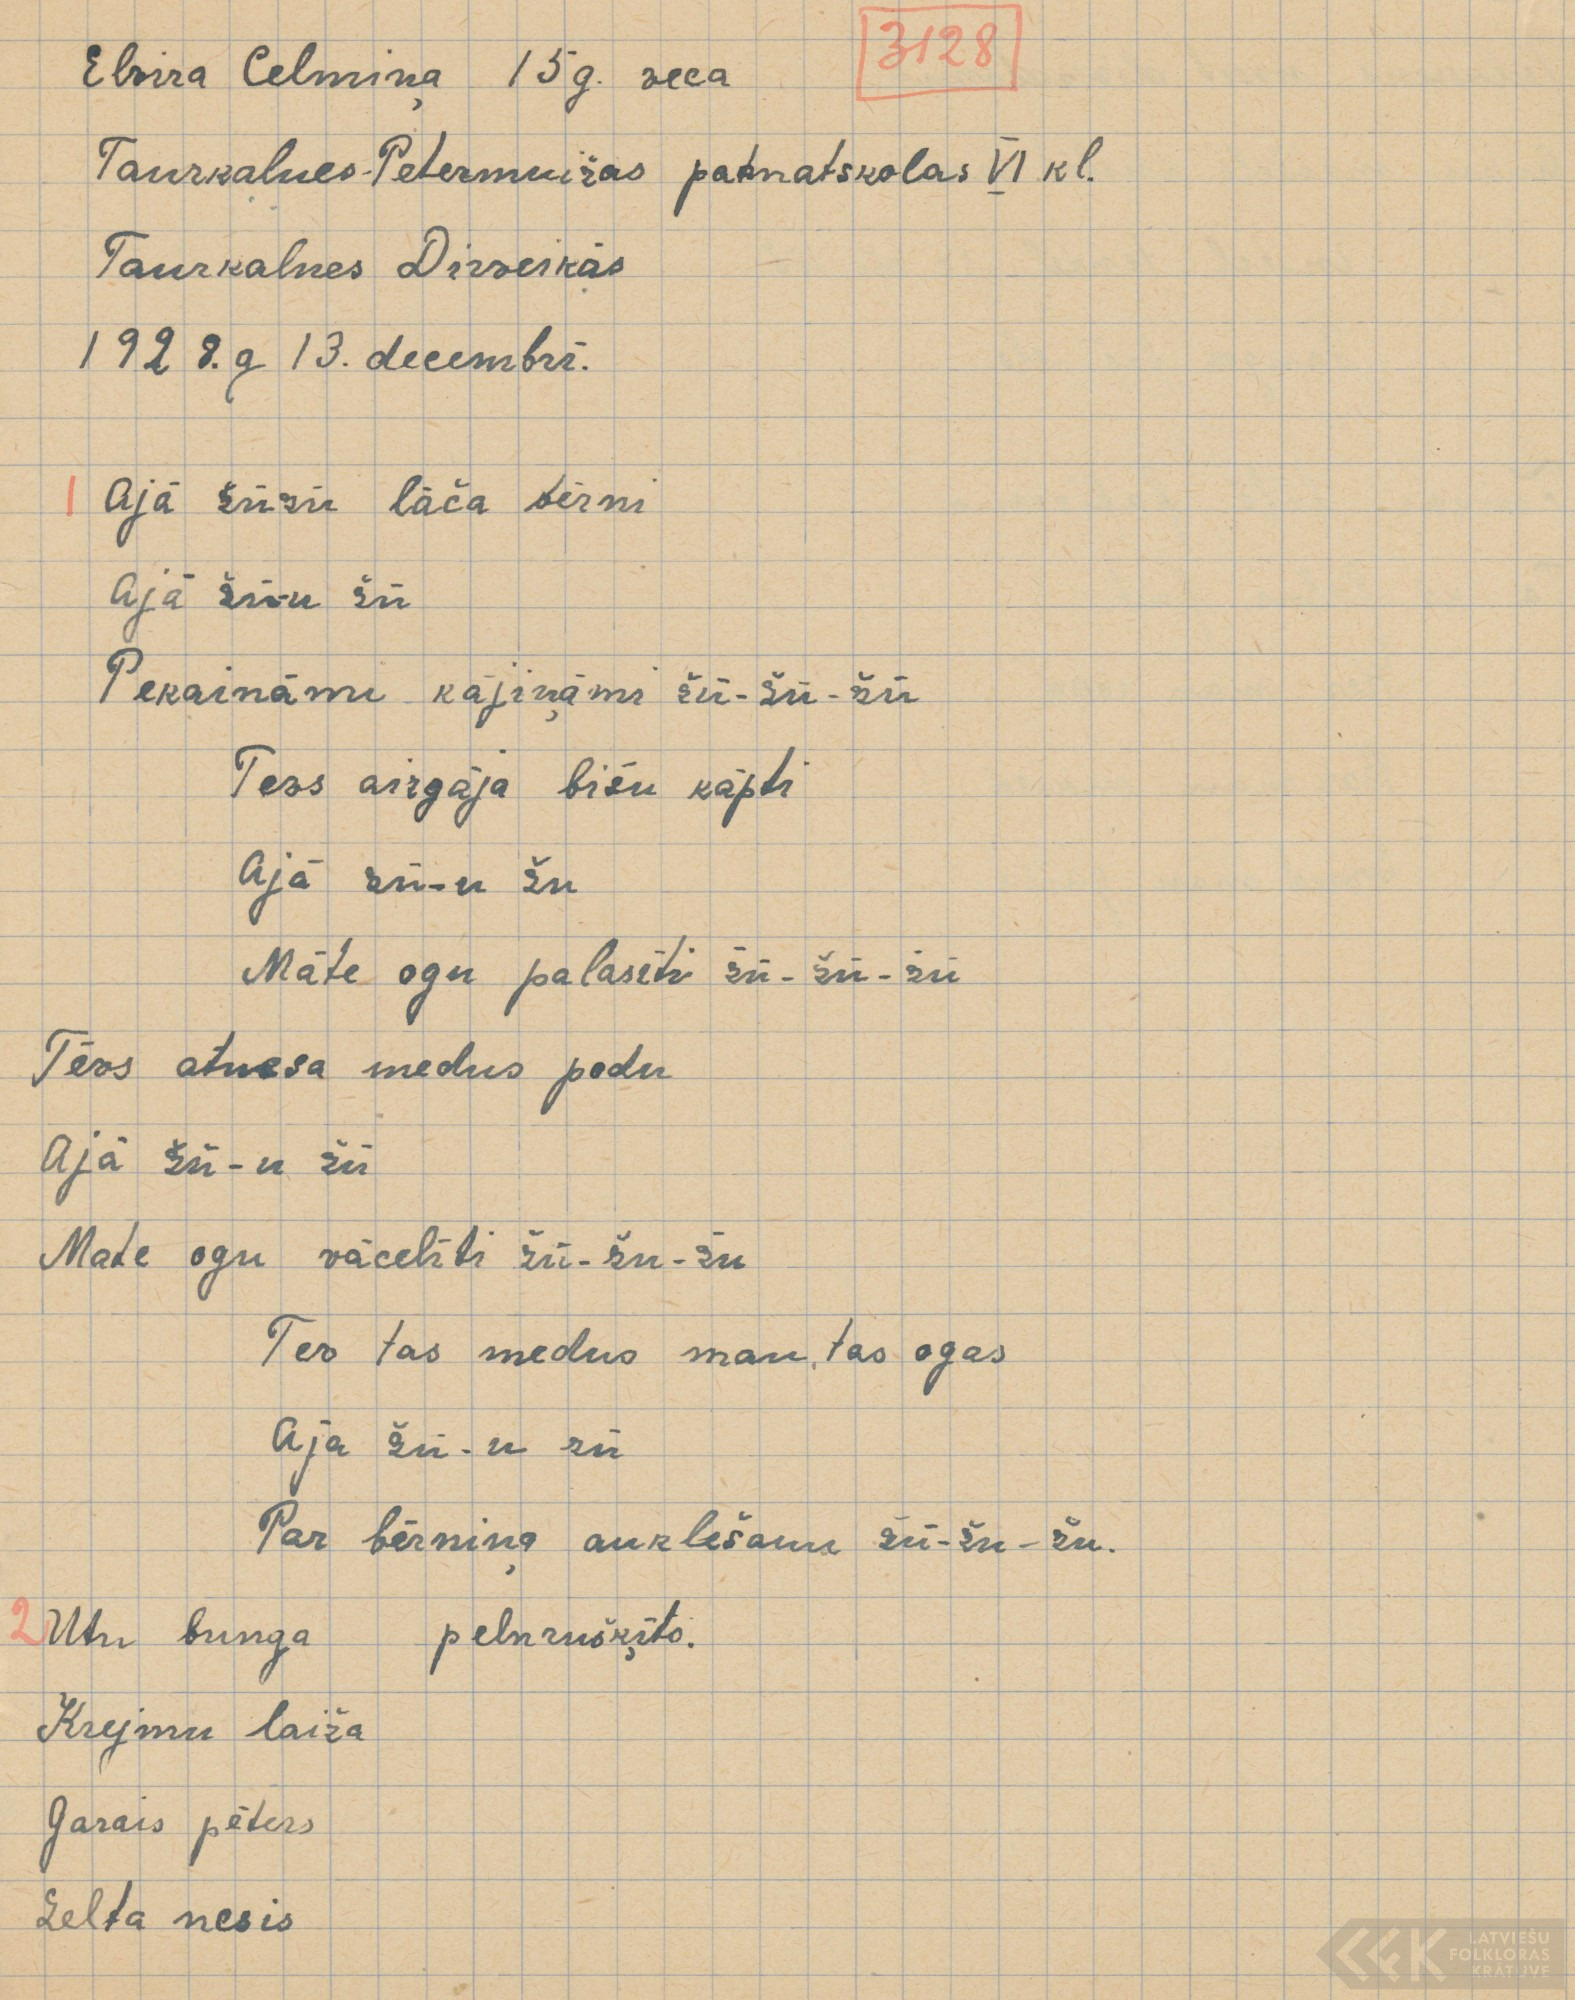 Elvira Celmiņa 15 g. veca 3128
Taurkaļnes-Pētermuižas pamatskolas VI kl.
Taurkalnes Dirveikās
1928. g 13. decembrī.
1 Ajā žūžū lāča bērni
Ajā žū-u žū
Pekaināmi kājiņāmi žū-žū-žū
Tevs aizgāja bišu kāpti
Ajā zū-u žu
Māte ogu palasīti žū-žū-žū
Tēvs atnesa medus podu
Ajā žū-u žū
Mate ogu vācelīti žū-žu-žu
Tev tas medus man, tas ogas
Aja žū-u zū
Par bērniņa auklešanu žū-žu-žu.
2 Utu bunga pelnrušķīts.
Krejmu laiža
Garais pēters
Zelta nesis
LATVIEŠU
FOLKLORAS
KRĀTUVE